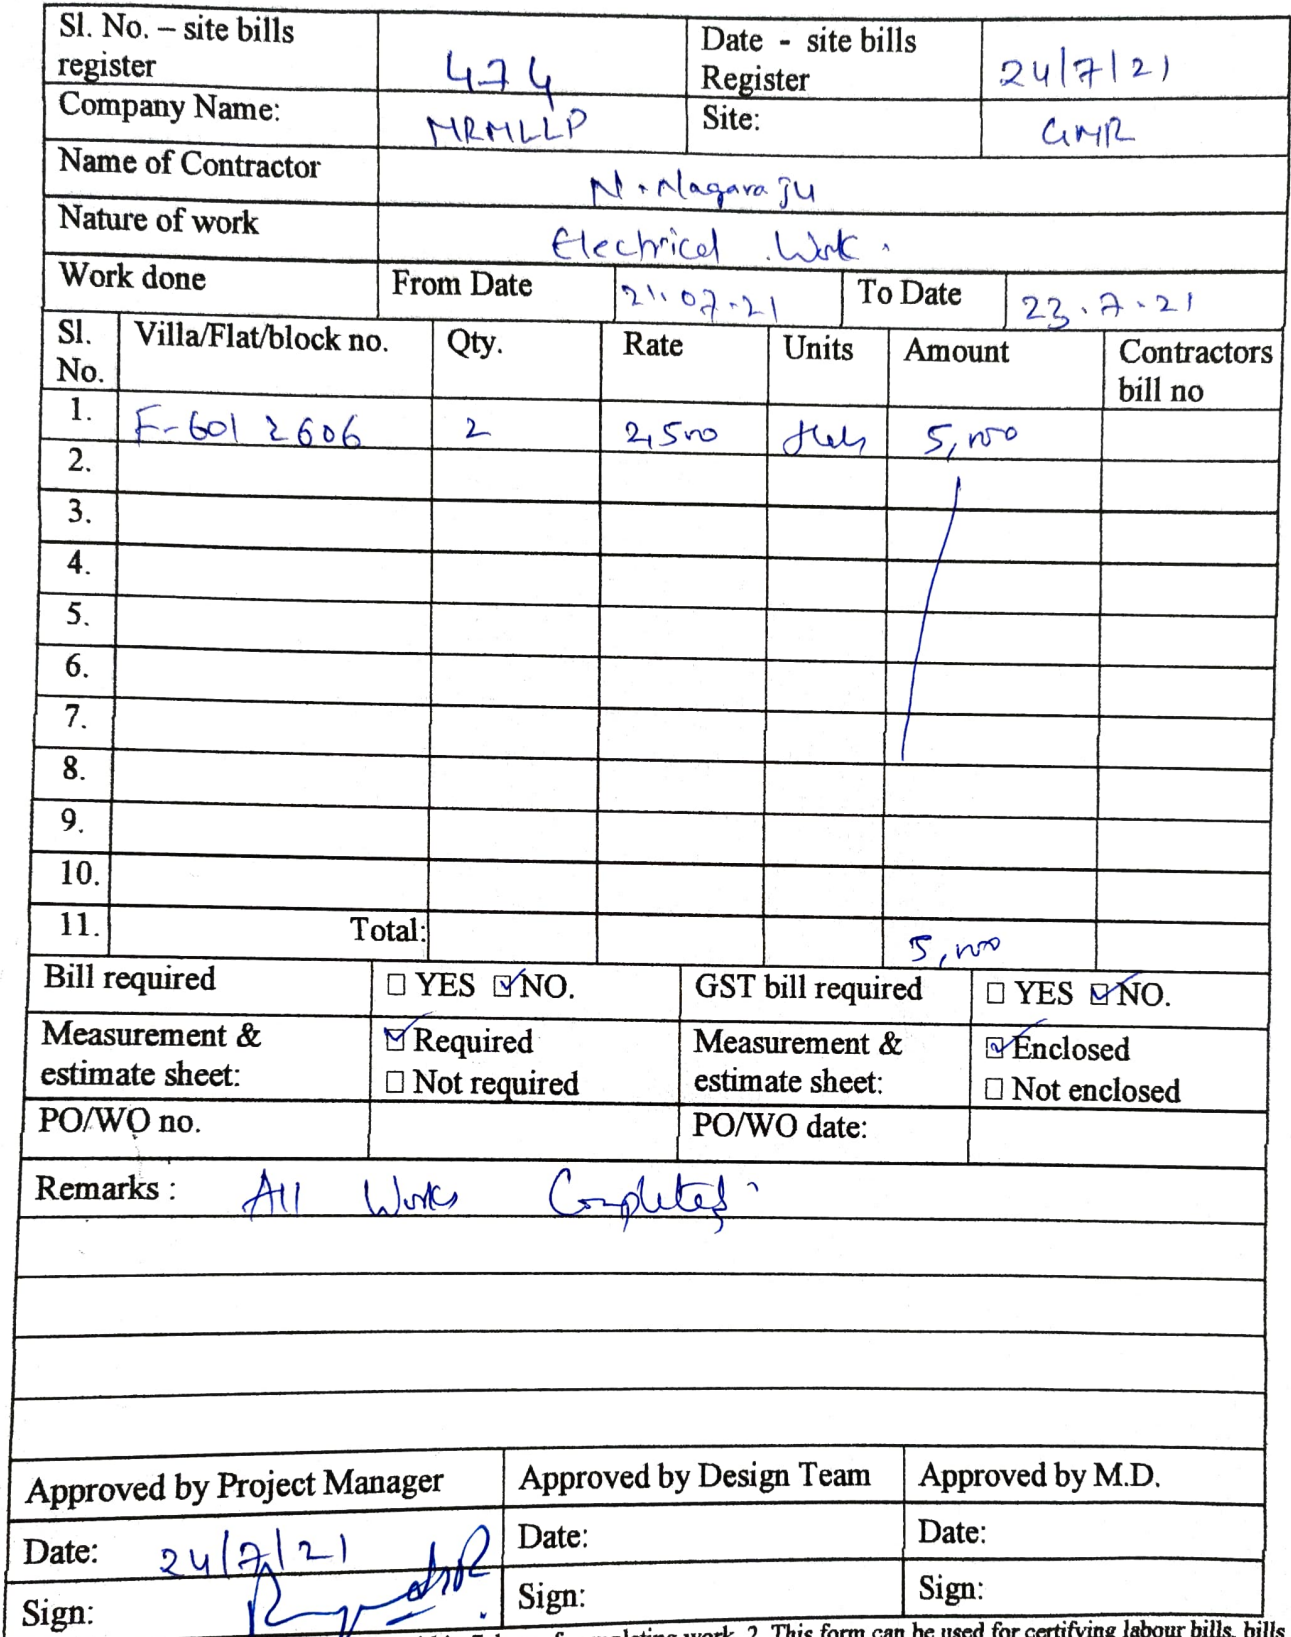 Sl. No. – site bills register 474 Date - site bills Register 24/7/21
Company Name: MRMLLP Site: GMR
Name of Contractor N. Nagaraju
Nature of work Electrical Work.
Work done From Date 21.07.21 To Date 23.7.21
Sl. No. Villa/Flat/block no. Qty. Rate Units Amount Contractors bill no
1. F-601 & 606 2 2,500 5,000
2.
3.
4.
5.
6.
7.
8.
9.
10.
11. Total: 5,000
Bill required ☐ YES ☑ NO. GST bill required ☐ YES ☑ NO.
Measurement & estimate sheet: ☑ Required Measurement & estimate sheet: ☑ Enclosed
☐ Not required ☐ Not enclosed
PO/WO no. PO/WO date:
Remarks : All Works Completed.
Approved by Project Manager Approved by Design Team Approved by M.D.
Date: 24/7/21 Date: Date:
Sign: Sign: Sign:
work. 2. This form can be used for certifying labour bills, bills